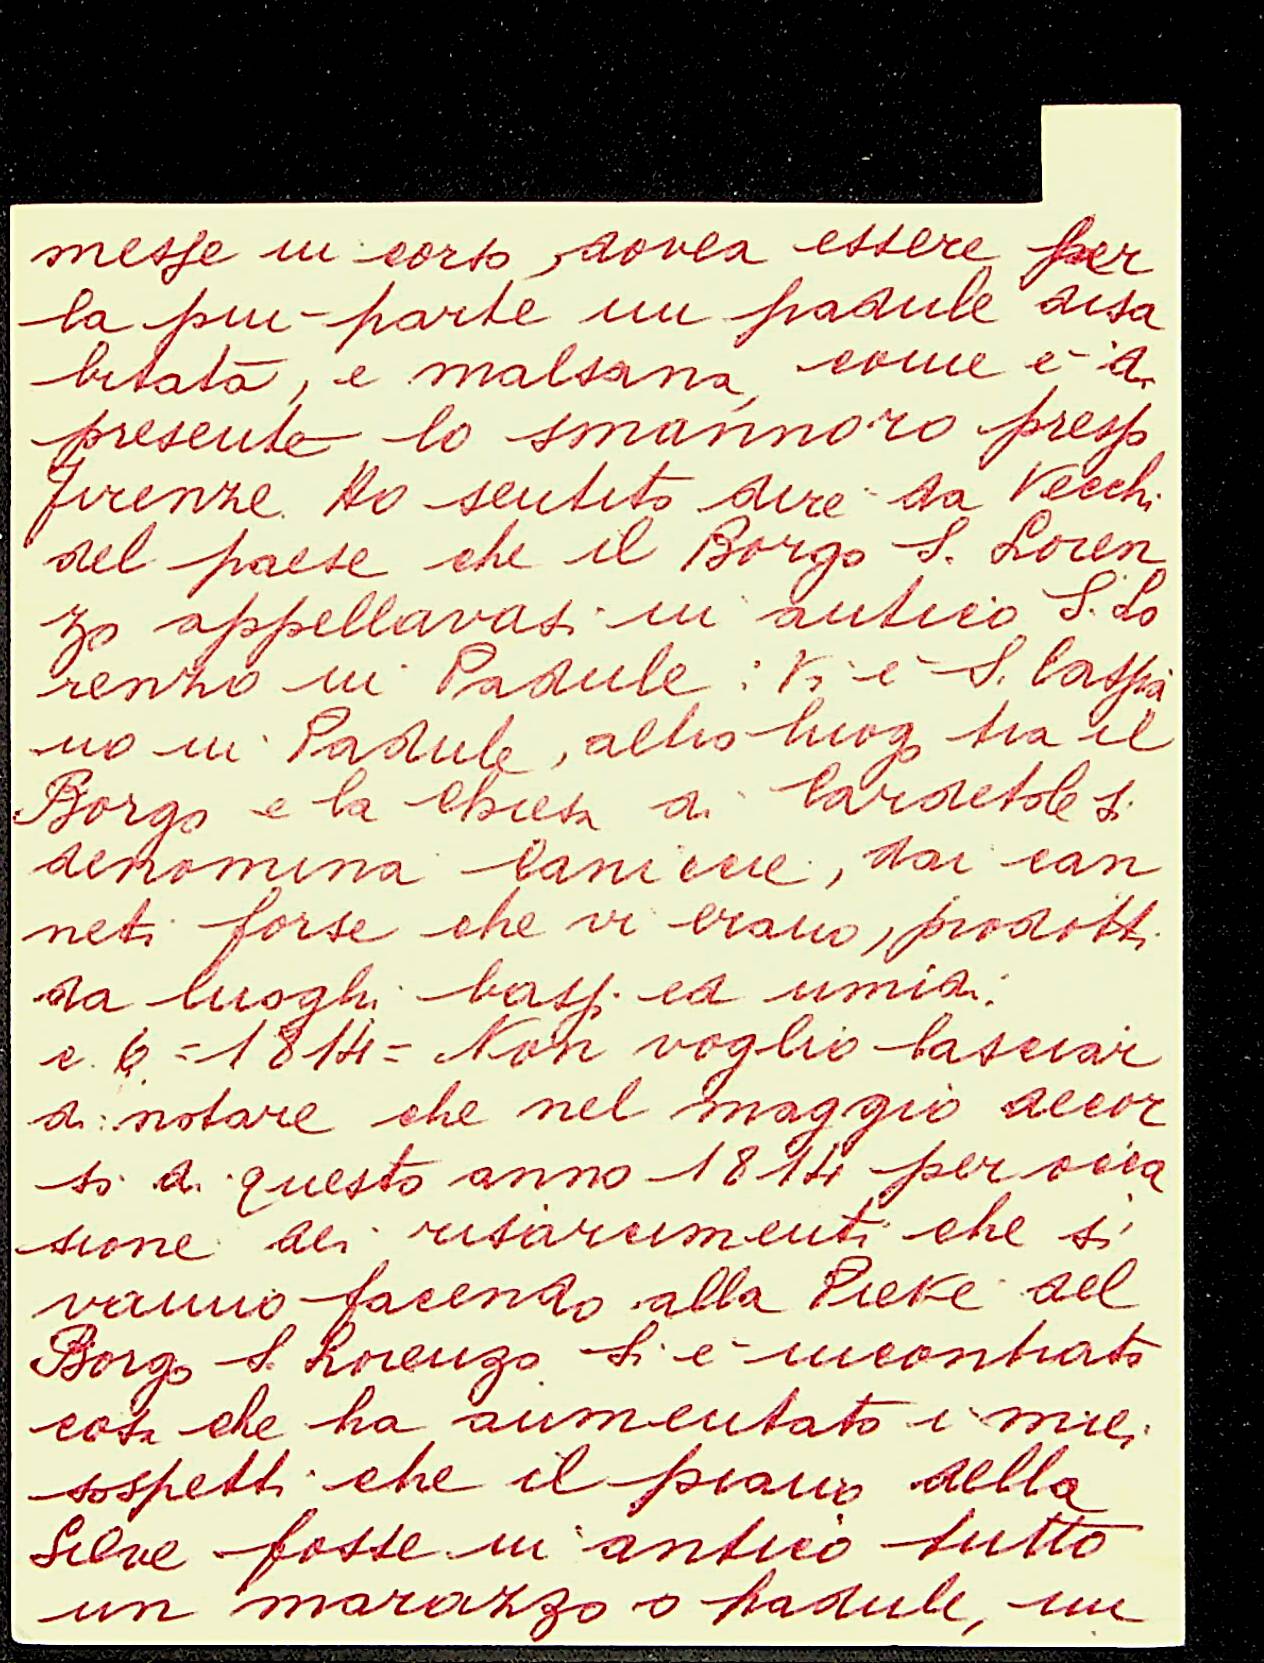 messe in corso, dovea essere per
la più-parte un padule disa
bitatà, e malsana, come è di
presente lo smannoro presso
Firenze. Ho sentito dire da Vecchi
del paese che il Borgo S. Loren
zo appellavasi in antico S. Lo
renzo in Padule: Vi è S. Cassia
no in Padule, altro luogo tra il
Borgo e la Chiesa di Cardetole si
denomina Canicce, dai can
neti forse che vi erano, prodotti
da luoghi bassi ed umidi.
c. 6 = 1814 = Non voglio lasciar
di notare che nel maggio decor
so di questo anno 1814 per occa
sione dei risarcimenti che si
vanno facendo alla Pieve del
Borgo S. Lorenzo si è incontrato
cosa che ha aumentato i miei
sospetti che il piano della
Sieve fosse in antico tutto
un marazzo o padule, un